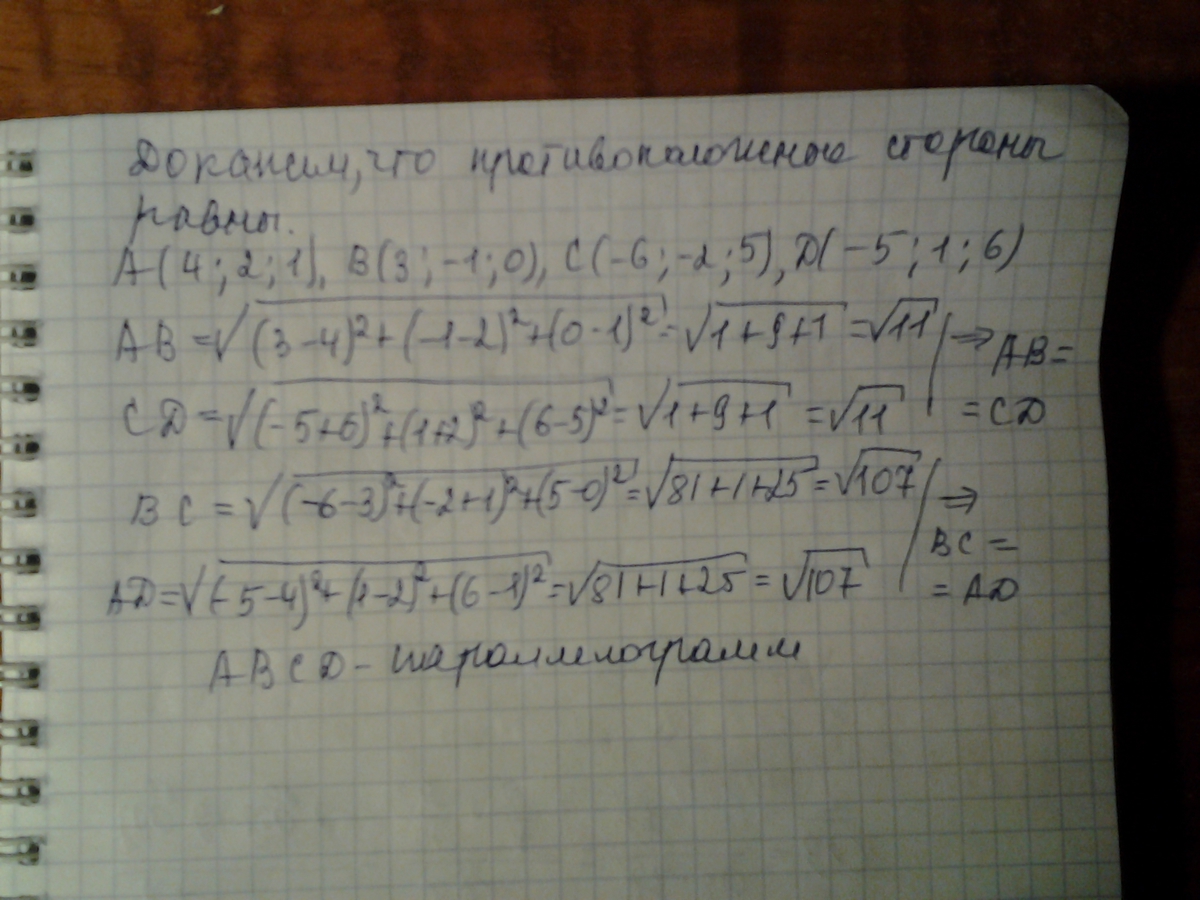 Докажем, что противоположные стороны
равны.
A(4; 2; 1), B(3; -1; 0), C(-6; -2; 5), D(-5; 1; 6)
AB = √((3-4)²+(-1-2)²+(0-1)²) = √(1+9+1) = √11 ⇒ AB =
CD = √((-5+6)²+(1+2)²+(6-5)²) = √(1+9+1) = √11 = CD
BC = √((-6-3)²+(-2+1)²+(5-0)²) = √(81+1+25) = √107 ⇒
BC =
AD = √((-5-4)²+(1-2)²+(6-1)²) = √(81+1+25) = √107 = AD
ABCD - параллелограмм